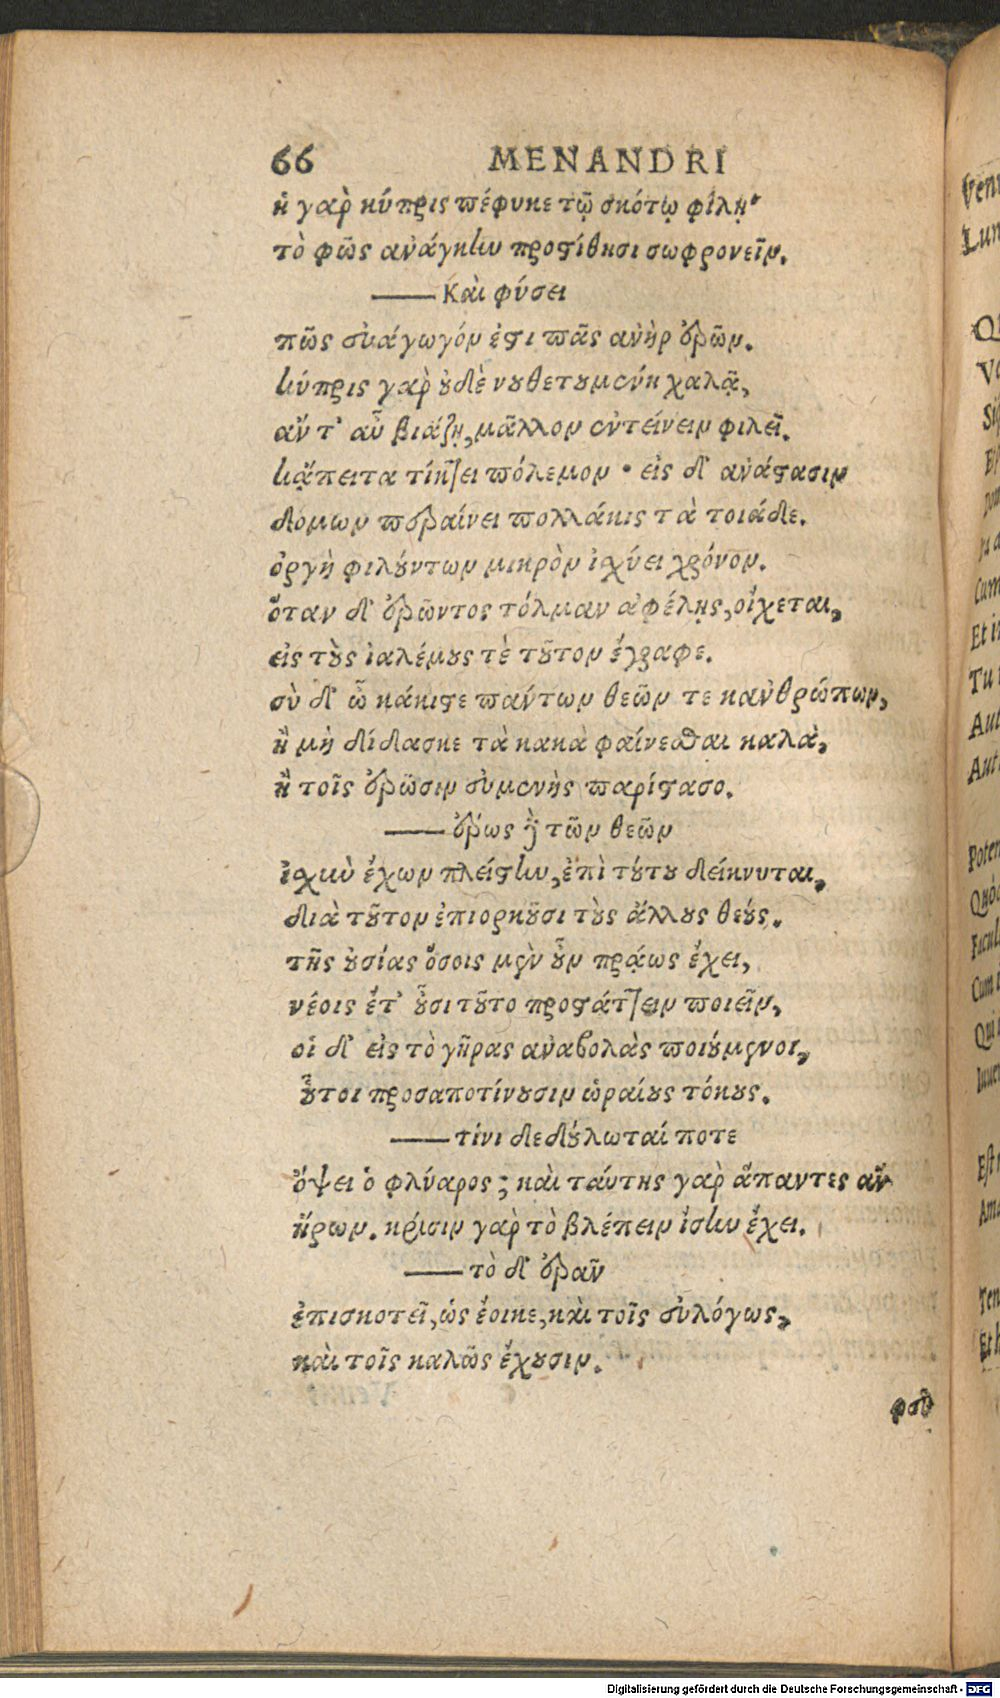 66 MENANDRI
ἡ γὰρ κύπρις πέφυκε τῷ σκότῳ φίλη·
τὸ φῶς ἀνάγκην προστίθησι σωφρονεῖν.
—— Καὶ φύσει
πῶς εὐάγωγόν ἐστι πᾶς ἀνὴρ ἐρῶν.
κύπρις γὰρ οὐδὲ νουθετουμένη χαλᾷ,
ἄν τ' αὖ βιάζῃ, μᾶλλον ἐντείνειν φιλεῖ.
κᾄπειτα τίκτει πόλεμον · εἰς δ' ἀνάστασιν
δόμων περαίνει πολλάκις τὰ τοιάδε.
ὀργὴ φιλούντων μικρὸν ἰσχύει χρόνον.
ὅταν δ' ἐρῶντος τόλμαν ἀφέλῃς, οἴχεται,
εἰς τοὺς ἰαλέμους τὲ τοῦτον ἔγραφε.
σὺ δ' ὦ κάκιστε πάντων θεῶν τε κανθρώπων,
ἢ μὴ δίδασκε τὰ κακὰ φαίνεσθαι καλὰ,
ἢ τοῖς ἐρῶσιν εὐμενὴς παρίστασο.
—— ἔρως γὰρ τῶν θεῶν
ἰσχὺν ἔχων πλείστην, ἐπὶ τούτου δείκνυται,
διὰ τοῦτον ἐπιορκοῦσι τοὺς ἄλλους θεούς.
τῆς οὐσίας ὅσοις μὲν οὖν πρᾴως ἔχει,
νέοις ἔτ' οὖσι τοῦτο προστάττειν ποιεῖν,
οἱ δ' εἰς τὸ γῆρας ἀναβολὰς ποιούμενοι,
οὗτοι προσαποτίνουσιν ὡραίους τόκους.
—— τίνι δεδούλωταί ποτε
ὄψει ὁ φλύαρος; καὶ ταύτης γὰρ ἅπαντες ἂν
ἤρων. κρίσιν γὰρ τὸ βλέπειν ἴσην ἔχει.
—— τὸ δ' ἐρᾶν
ἐπισκοτεῖ, ὡς ἔοικε, καὶ τοῖς εὐλόγως,
καὶ τοῖς καλῶς ἔχουσιν.
Digitalisierung gefördert durch die Deutsche Forschungsgemeinschaft - DFG